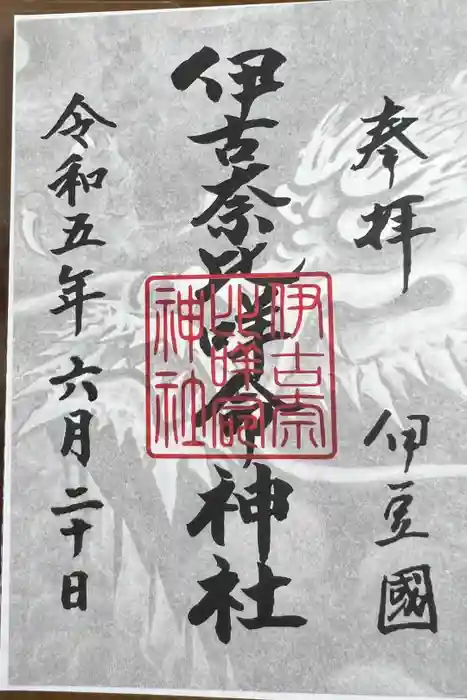 奉拝
伊豆國
伊古奈比咩命神社
伊古奈
比咩命
神社
令和五年六月二十日